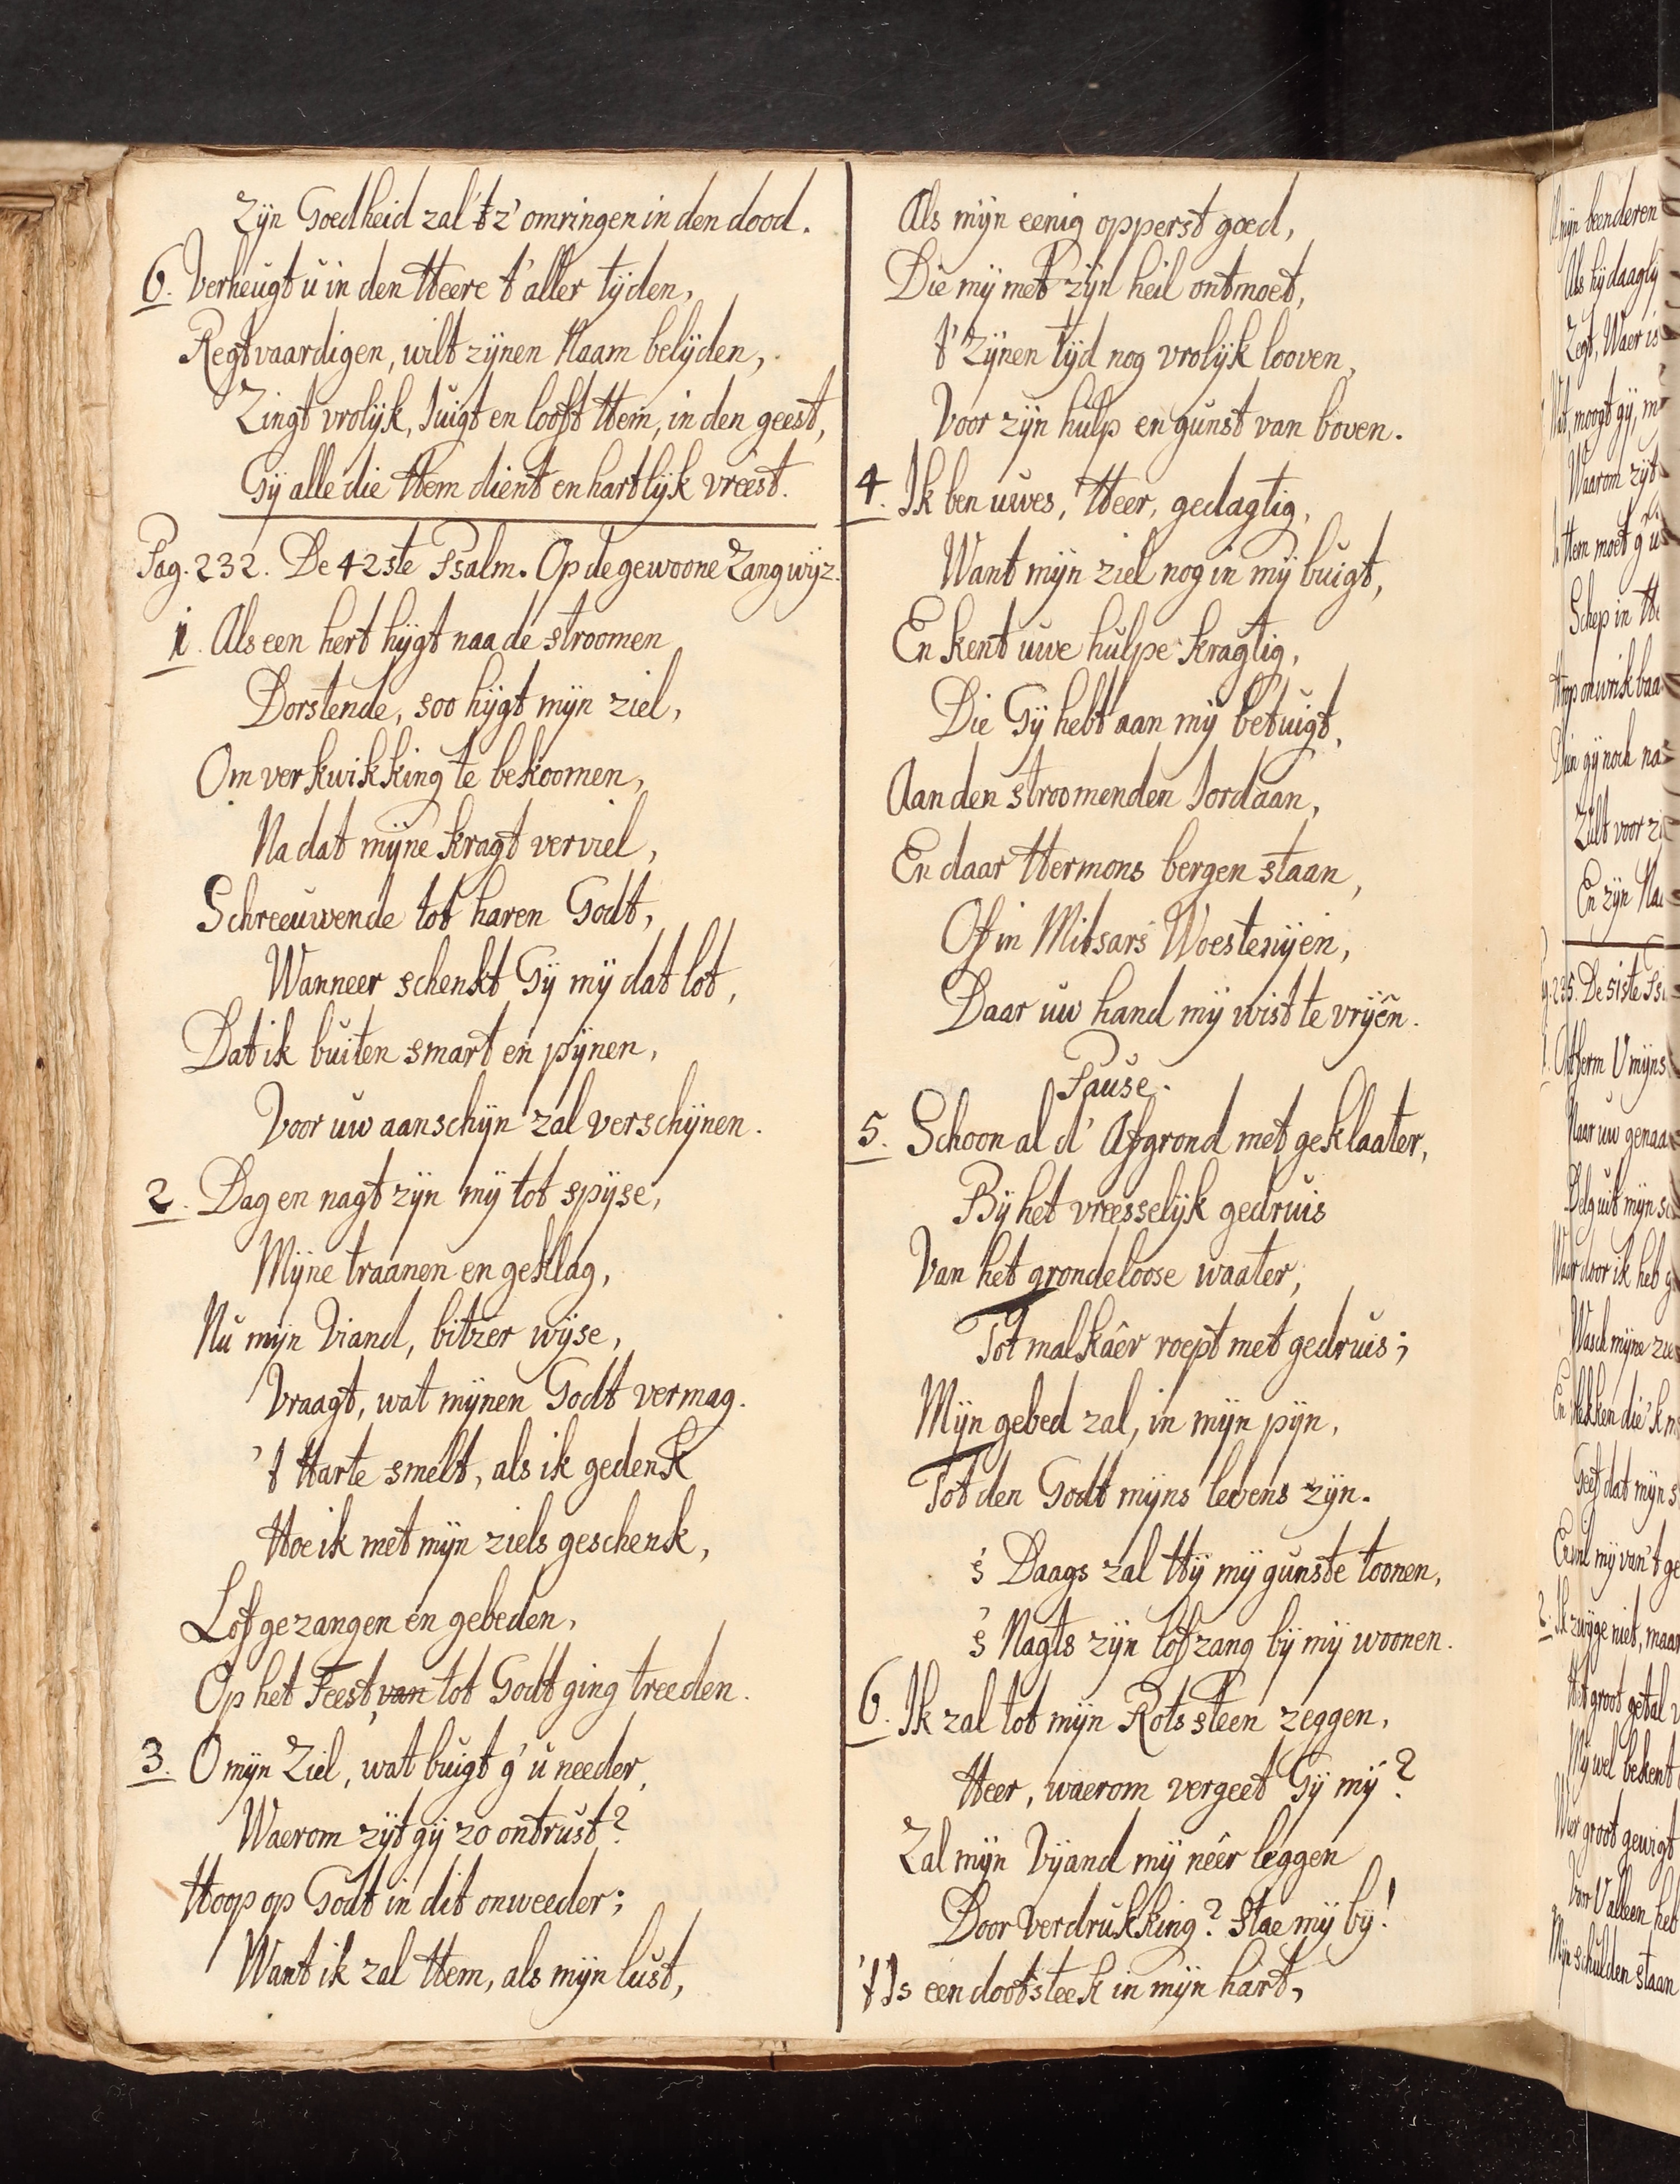 Zÿn Goedheid zal 't z' omringen in den dood.
6. Verheugt u in den Heere t' aller tÿden,
Regtvaardigen, wilt zÿnen Naam belÿden,
Zingt vrolÿk, Juigt en looft Hem, in den geest,
Gÿ alle die Hem dient en hartlÿk vreest.
Pag. 232. De 42ste Psalm. Op de gewoone Zangwÿz.
1. Als een hert hÿgt naa de stroomen
Dorstende, soo hÿgt mÿn ziel,
Om verkwikking te bekoomen,
Na dat mÿne kragt verviel,
Schreeuwende tot haren Godt,
Wanneer schenkt Gÿ mÿ dat lot,
Dat ik buiten smart en pÿnen,
Voor uw aanschÿn zal verschÿnen.
2. Dag en nagt zÿn mÿ tot spÿse,
Mÿne traanen en geklag,
Nu mÿn Viand, bitzer wÿse,
Vraagt, wat mÿnen Godt vermag.
't Harte smelt, als ik gedenk
Hoe ik met mÿn ziels geschenk,
Lofgezangen en gebeden,
Op het Feest, van tot Godt ging treeden.
3. O mÿn Ziel, wat buigt g' u needer,
Waerom zÿt gÿ zo ontrust?
Hoop op Godt in dit onweeder;
Want ik zal Hem, als mÿn lust,
Als mÿn eenig opperst goed,
Die mÿ met zÿn heil ontmoet,
t' Zÿnen tÿd nog vrolÿk looven,
Voor zÿn hulp en gunst van boven.
4. Ik ben uwes, Heer, gedagtig,
Want mÿn ziel nog in mÿ buigt,
En kent uwe hulpe kragtig,
Die Gÿ hebt aan mÿ betuigt,
Aan den stroomenden Jordaan,
En daar Hermons bergen staan,
Of in Mitsars Woestenÿen,
Daar uw hand mÿ wist te vrÿên.
Pause.
5. Schoon al d' Afgrond met geklaater,
Bÿ het vreesselÿk gedruis
Van het grondeloose waater,
Tot malkaêr roept met gedruis;
Mÿn gebed zal, in mÿn pÿn,
Tot den Godt mÿns levens zÿn.
's Daags zal Hÿ mÿ gunste toonen,
's Nagts zÿn lofzang bÿ mÿ woonen.
6. Ik zal tot mÿn Rotssteen zeggen,
Heer, waerom vergeet Gÿ mÿ?
Zal mÿn Vÿand mÿ neêr leggen
Door verdrukking? Stae mÿ bÿ!
't Is een dootsteek in mÿn hart,
mÿn beenderen
Als hÿ daaglÿ
Zegt, Waer is
moogt gÿ, m
Waarom zÿt
Hem moet g' u
Schep in He
Hop onwrikbaa
gÿ noch na
Zult voor z
En zÿn Na
235. De 51ste Ps
Ontferm U mÿns
Naar uw genaa
Delg uit mÿn s
Waar door ik heb g
Wasch mÿne z
En vlekken die 'k m
Geef dat mÿn s
mÿ van 't ge
2. Ik zwÿge niet, maar
Het groot getal v
Mÿ wel bekent
groot gewigt
Voor U alleen heb
Mÿn schulden staan